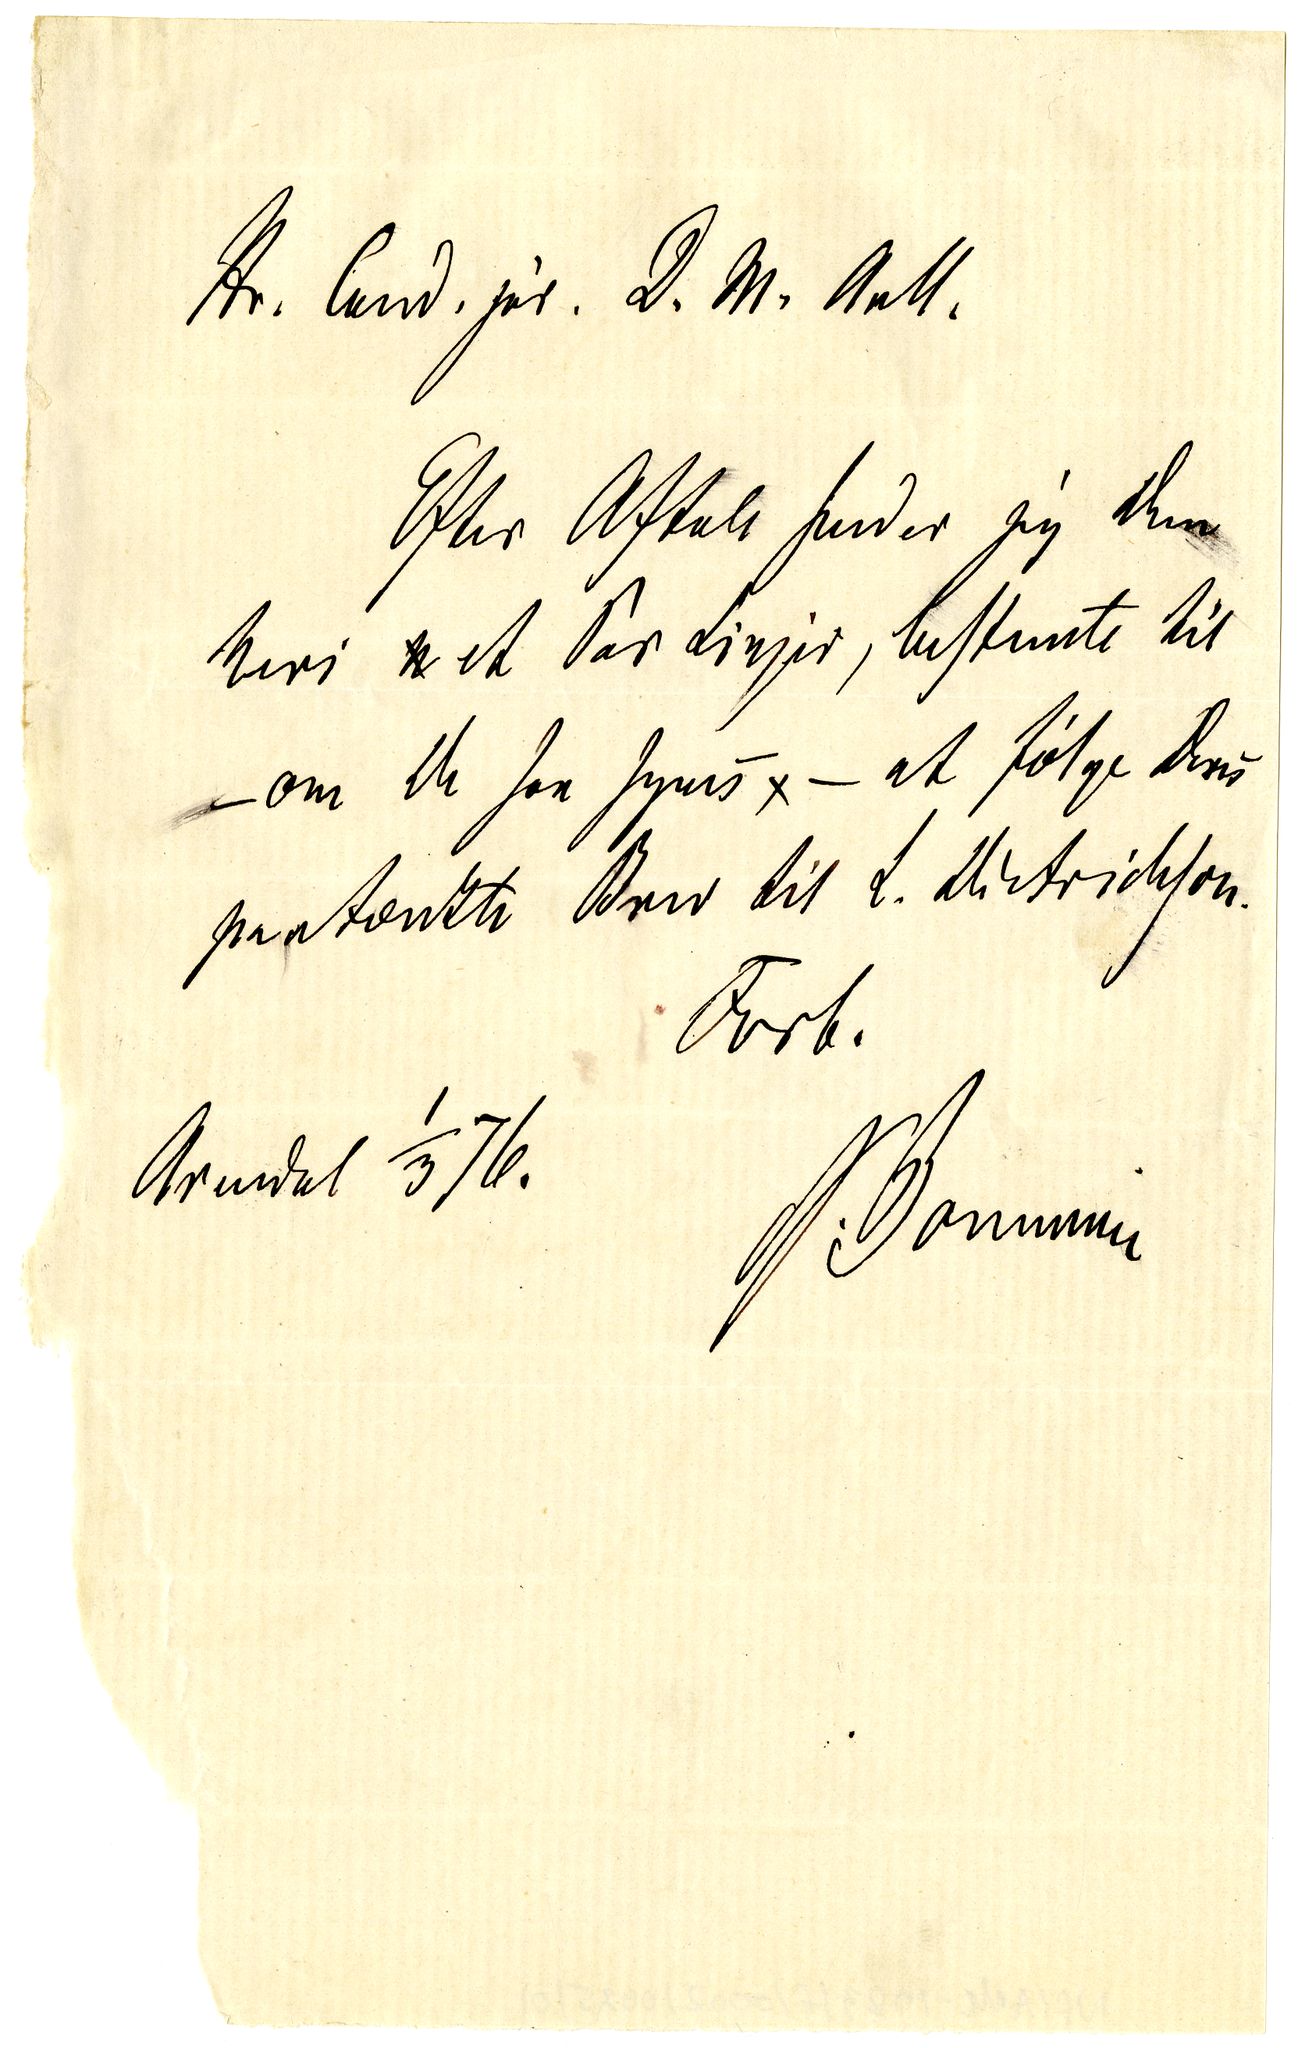 Hr. Cand. jur. D. M. Aall.
Efter Aftale sender jeg Dem
heri et Par Linjer, bestemte til
– om De saa synes – at følge Deres
paatænkte Brev til L. Dietrichson.
Forb.
Arendal 1/3 76.